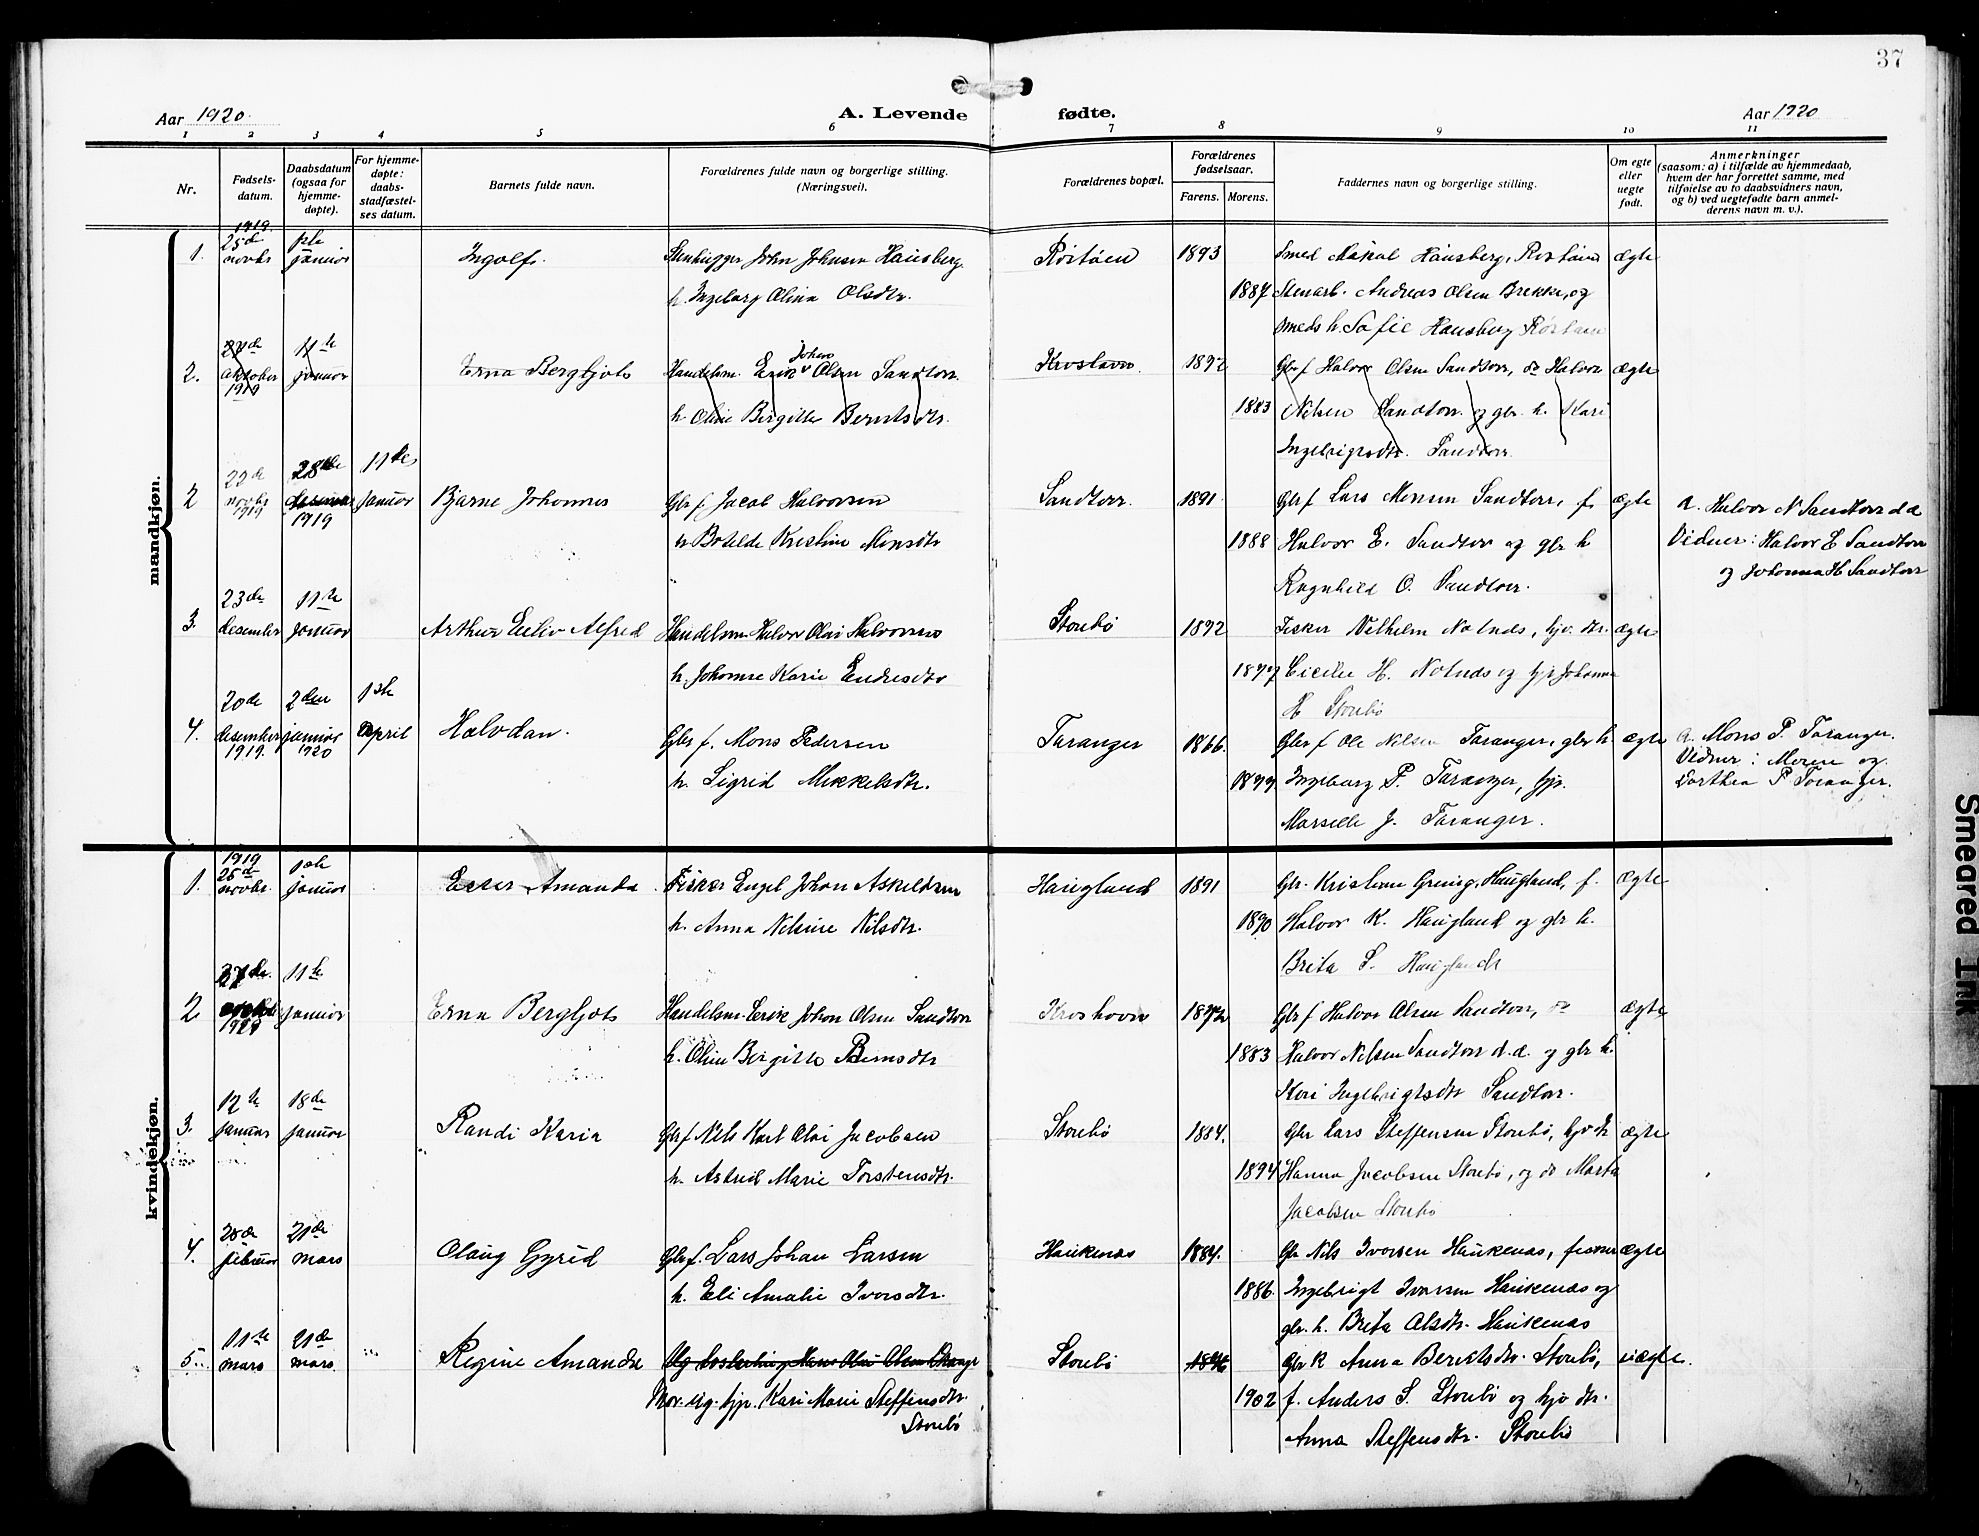 37
Aar 1920.
A. Levende fødte.
Aar 1920
1 2 3 4 5 6 7 8 9 10 11
Nr.
Fødsels-
datum.
Daabsdatum
(ogsaa for
hjemme-
døpte).
For hjemme-
døpte:
daabs-
stadfæstel-
ses datum.
Barnets fulde navn.
Forældrenes fulde navn og borgerlige stilling.
(Næringsvei).
Forældrenes bopæl.
Forældrenes
fødselsaar.
Farens. Morens.
Faddernes navn og borgerlige stilling.
Om egte
eller
uegte
født.
Anmerkninger
(saasom: a) i tilfælde av hjemmedaab,
hvem der har forrettet samme, med
tilføielse av to daabsvidners navn,
og b) ved uegtefødte barn anmel-
derens navn m. v.).
mandkjøn.
1919
1. 25de novbr 1ste januar Ingolf. Stenhugger John Johnsen Hausberg. Røstøen 1893 Smed Mikal Hausberg, Røstøen ægte
h. Ingeborg Olina Olsdtr. 1887 Stenarb. Andreas Olsen Brekke, og
smeds h. Sofie Hausberg Røstøen
2. oktober 1919 11te januar Erna Bergljot Handelsm. Erik Johan Olsen Sandtorv. Krosshavn 1892 Gbr f Halvor Olsen Sandtorv, do Halvor ægte
h. Oline Birgitte Berntsdtr. 1883 Nilsen Sandtorv og gbr. h. Kari
Ingebrigtsdtr. Sandtorv
2 22de novbr 1919 28de 1919 11te januar Bjarne Johannes Gbr f Jacob Halvorsen Sandtorv. 1891 Gbr f Lars Monsen Sandtorv, f. ægte a. Halvor N Sandtorv d.æ
h Botilde Kristine Monsdtr 1888 Halvor E. Sandtorv og gbr h Vidner: Halvor E Sandtorv
Ragnhild O. Sandtorv. og Johanna H Sandtorv
3. 23de desember 11te januar Arthur Eiliv Alfred Handelsm Halvor Olai Halvorsen Storebø 1892 Fisker Vilhelm Notnæs, hjv. dtr. ægte
h. Johanne Karie Endresdtr Cicilie H. Notnæs og tjp Johanna
H Storebø
4. 20de desember 1919. 2den januar 1920 1ste April Halvdan. Gbr f. Mons Pedersen Taranger 1866. Gbr f Ole Nilsen Taranger, gbr h. ægte a. Mons P. Taranger.
h. Sigrid Mikkelsdtr. Ingeborg P. Taranger, tjp. Vidner: Meren og
Marselle J. Taranger. Dorthea P Taranger.
kvindekjøn.
1919
1. 25de novbr. 1ste januar Ester Amanda Fisker Engel Johan Askeldsen Haugland 1891 Gbr. Kristian Grunng, Haugland, f. ægte
h. Anna Nelsine Nilsdtr. 1890 Halvor K. Haugland og gbr h.
Brita S. Haugland
2 27de 11te januar Erna Bergljot Handelsm. Erik Johan Olsen Sandtorv Krosshavn Gbr f Halvor Olsen Sandtorv, do ægte
h. Oline Birgitte Berntsdtr 1883 Halvor Nilsen Sandtorv d.æ. og gbr h.
Kari Ingebrigtsdtr Sandtorv.
3. 12te januar 18de januar Randi Karia Gbr f Nils Karl Olai Jacobsen Storebø 1884. Gbr Lars Steffensen Storebø, hjv dtr ægte
h. Astrid Marie Torstensdtr. 1894 Hanna Jacobsen Storebø, og do Marta
Jacobsen Storebø
4. 20de februar 21de mars Olaug Gyrid Gbr f. Lars Johan Larsen Haukenæs 1884. Gbr Nils Iversen Haukenæs, fisker ægte
h. Eli Amalie Iversdtr. 1886. Ingebrigt Iversen Haukenæs og
gbr. h. Brita Olsdtr. Haukenæs
5. 11te mars 21de mars Regine Amanda Storebø Gbr k Anna Berntsdtr. Storebø, uægte.
Mor: Ug. tjp. Kari Marie Steffensdtr. 1902 f. Anders S. Storebø og hjv dtr.
Storebø Anna Steffensdtr. Storebø
Smeared Ink